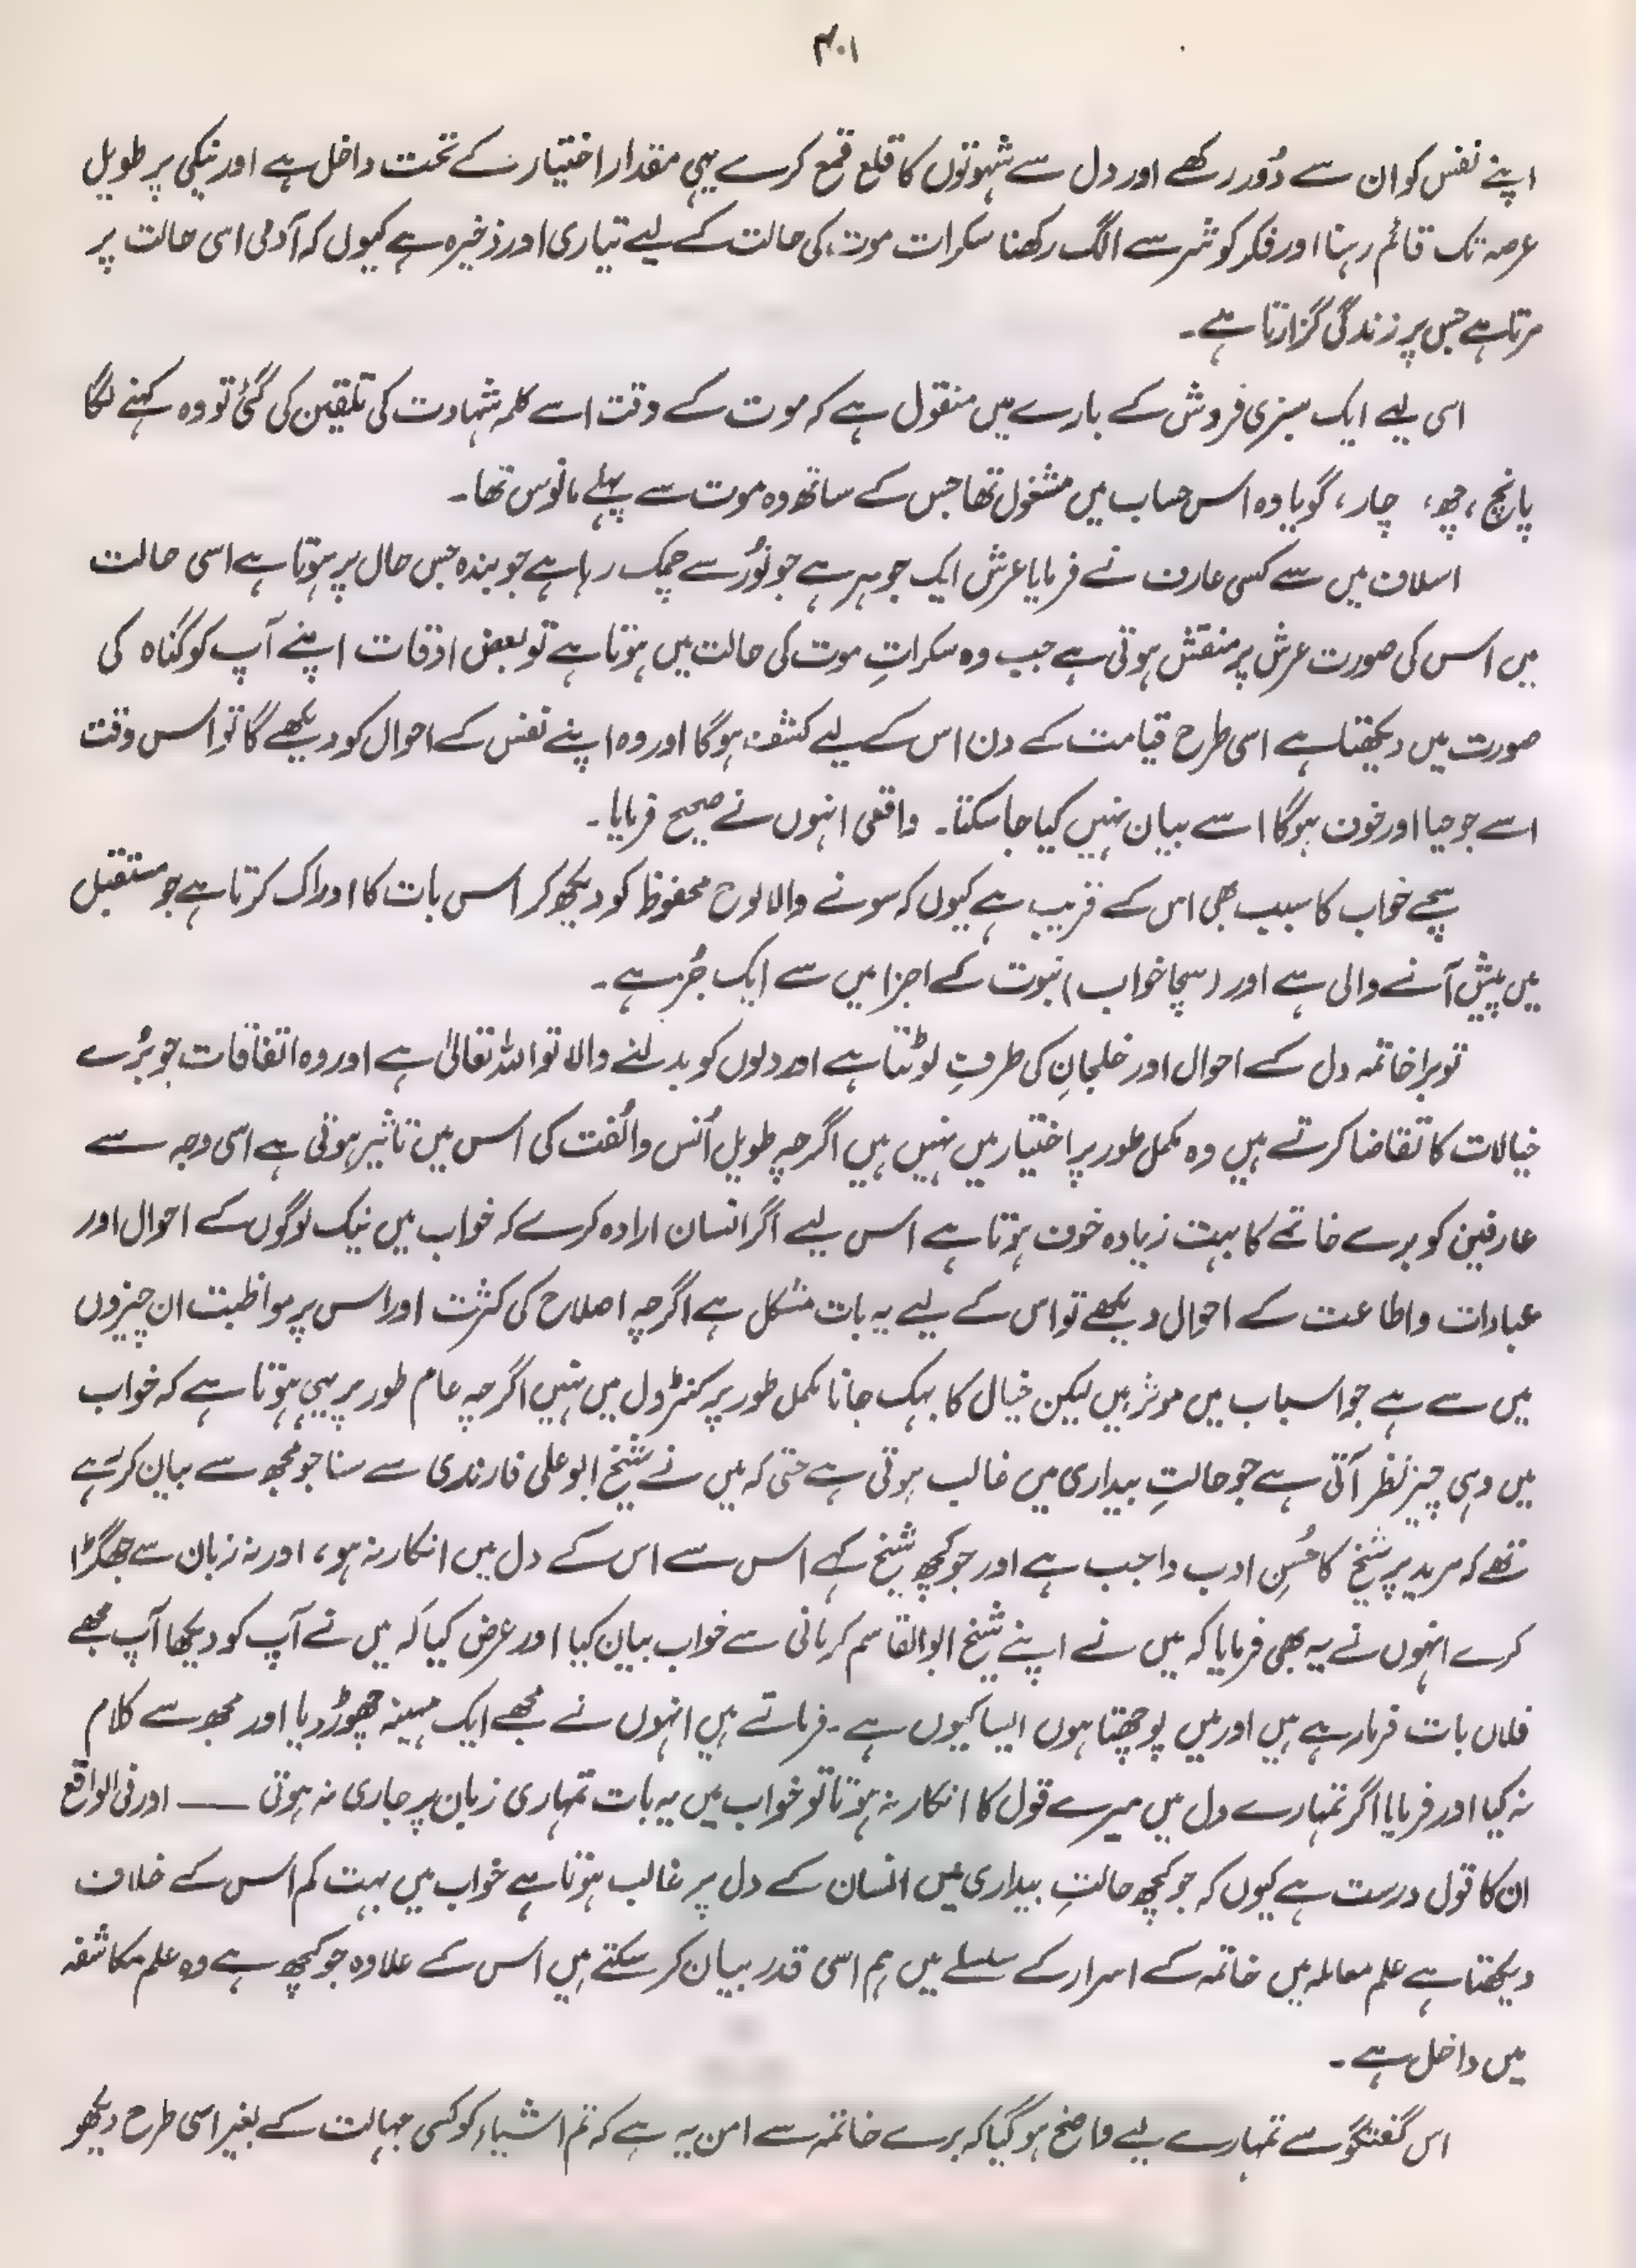 ۴۰۱
اپنے نفس کو ان سے دُور رکھے اور دل سے شہوتوں کا قلع قمع کرے یہی مقدار اختیار کے تحت داخل ہے اور نیکی پر طویل
عرصہ تک قائم رہنا اور فکر کو شر سے الگ رکھنا سکرات موت کی حالت کے لیے تیاری اور ذخیرہ ہے کیوں کہ آدمی اسی حالت پر
مرتا ہے جس پر زندگی گزارتا ہے۔
اسی لیے ایک سبزی فروش کے بارے میں منقول ہے کہ موت کے وقت اسے کلمہ شہادت کی تلقین کی گئی تو وہ کہنے لگا
پانچ، چھ، چار، گویا وہ اس حساب میں مشغول تھا جس کے ساتھ وہ موت سے پہلے مانوس تھا۔
اسلاف میں سے کسی عارف نے فرمایا عرش ایک جوہر ہے جو نُور سے چمک رہا ہے جو بندہ جس حال پر ہوتا ہے اسی حالت
میں اس کی صورت عرش پر منقش ہوتی ہے جب وہ سکراتِ موت کی حالت میں ہوتا ہے تو بعض اوقات اپنے آپ کو گناہ کی
صورت میں دیکھتا ہے اسی طرح قیامت کے دن اس کے لیے کشف ہوگا اور وہ اپنے نفس کے احوال کو دیکھے گا تو اس وقت
اسے جو حیا اور خوف ہوگا اسے بیان نہیں کیا جا سکتا۔ واقعی انہوں نے صحیح فرمایا۔
سچے خواب کا سبب بھی اس کے قریب ہے کیوں کہ سونے والا لوح محفوظ کو دیکھ کر اس بات کا ادراک کرتا ہے جو مستقبل
میں پیش آنے والی ہے اور (سچا خواب) نبوت کے اجزا میں سے ایک جُز ہے۔
تو برا خاتمہ دل کے احوال اور خلجان کی طرف لوٹتا ہے اور دلوں کو بدلنے والا تو اللہ تعالیٰ ہے اور وہ اتفاقات جو بُرے
خیالات کا تقاضا کرتے ہیں وہ مکمل طور پر اختیار میں نہیں ہیں اگرچہ طویل اُنس و اُلفت کی اس میں تاثیر ہوتی ہے اسی وجہ سے
عارفین کو برے خاتمے کا بہت زیادہ خوف ہوتا ہے اس لیے اگر انسان ارادہ کرے کہ خواب میں نیک لوگوں کے احوال اور
عبادات و اطاعت کے احوال دیکھے تو اس کے لیے یہ بات مشکل ہے اگرچہ اصلاح کی کثرت اور اس پر مواظبت ان چیزوں
میں سے ہے جو اسباب میں موثر ہیں لیکن خیال کا بہک جانا مکمل طور پر کنٹرول میں نہیں اگرچہ عام طور پر یہی ہوتا ہے کہ خواب
میں وہی چیز نظر آتی ہے جو حالتِ بیداری میں غالب ہوتی ہے حتی کہ میں نے شیخ ابو علی فارندی سے سنا جو مجھ سے بیان کر رہے
تھے کہ مرید پر شیخ کا حُسنِ ادب واجب ہے اور جو کچھ شیخ کہے اس سے اس کے دل میں انکار نہ ہو، اور نہ زبان سے جھگڑا
کرے انہوں نے یہ بھی فرمایا کہ میں نے اپنے شیخ ابوالقاسم کرمانی سے خواب بیان کیا اور عرض کیا کہ میں نے آپ کو دیکھا آپ مجھے
فلاں بات فرما رہے ہیں اور میں پوچھتا ہوں ایسا کیوں ہے۔ فرماتے ہیں انہوں نے مجھے ایک مہینہ چھوڑ دیا اور مجھ سے کلام
نہ کیا اور فرمایا اگر تمہارے دل میں میرے قول کا انکار نہ ہوتا تو خواب میں یہ بات تمہاری زبان پر جاری نہ ہوتی ـــــ اور فی الواقع
ان کا قول درست ہے کیوں کہ جو کچھ حالتِ بیداری میں انسان کے دل پر غالب ہوتا ہے خواب میں بہت کم اس کے خلاف
دیکھتا ہے علم معاملہ میں خاتمہ کے اسرار کے سلسلے میں ہم اسی قدر بیان کر سکتے ہیں اس کے علاوہ جو کچھ ہے وہ علم مکاشفہ
میں داخل ہے۔
اس گفتگو سے تمہارے لیے واضح ہو گیا کہ برے خاتمہ سے امن یہ ہے کہ تم اشیاء کو کسی جہالت کے بغیر اسی طرح دیکھو